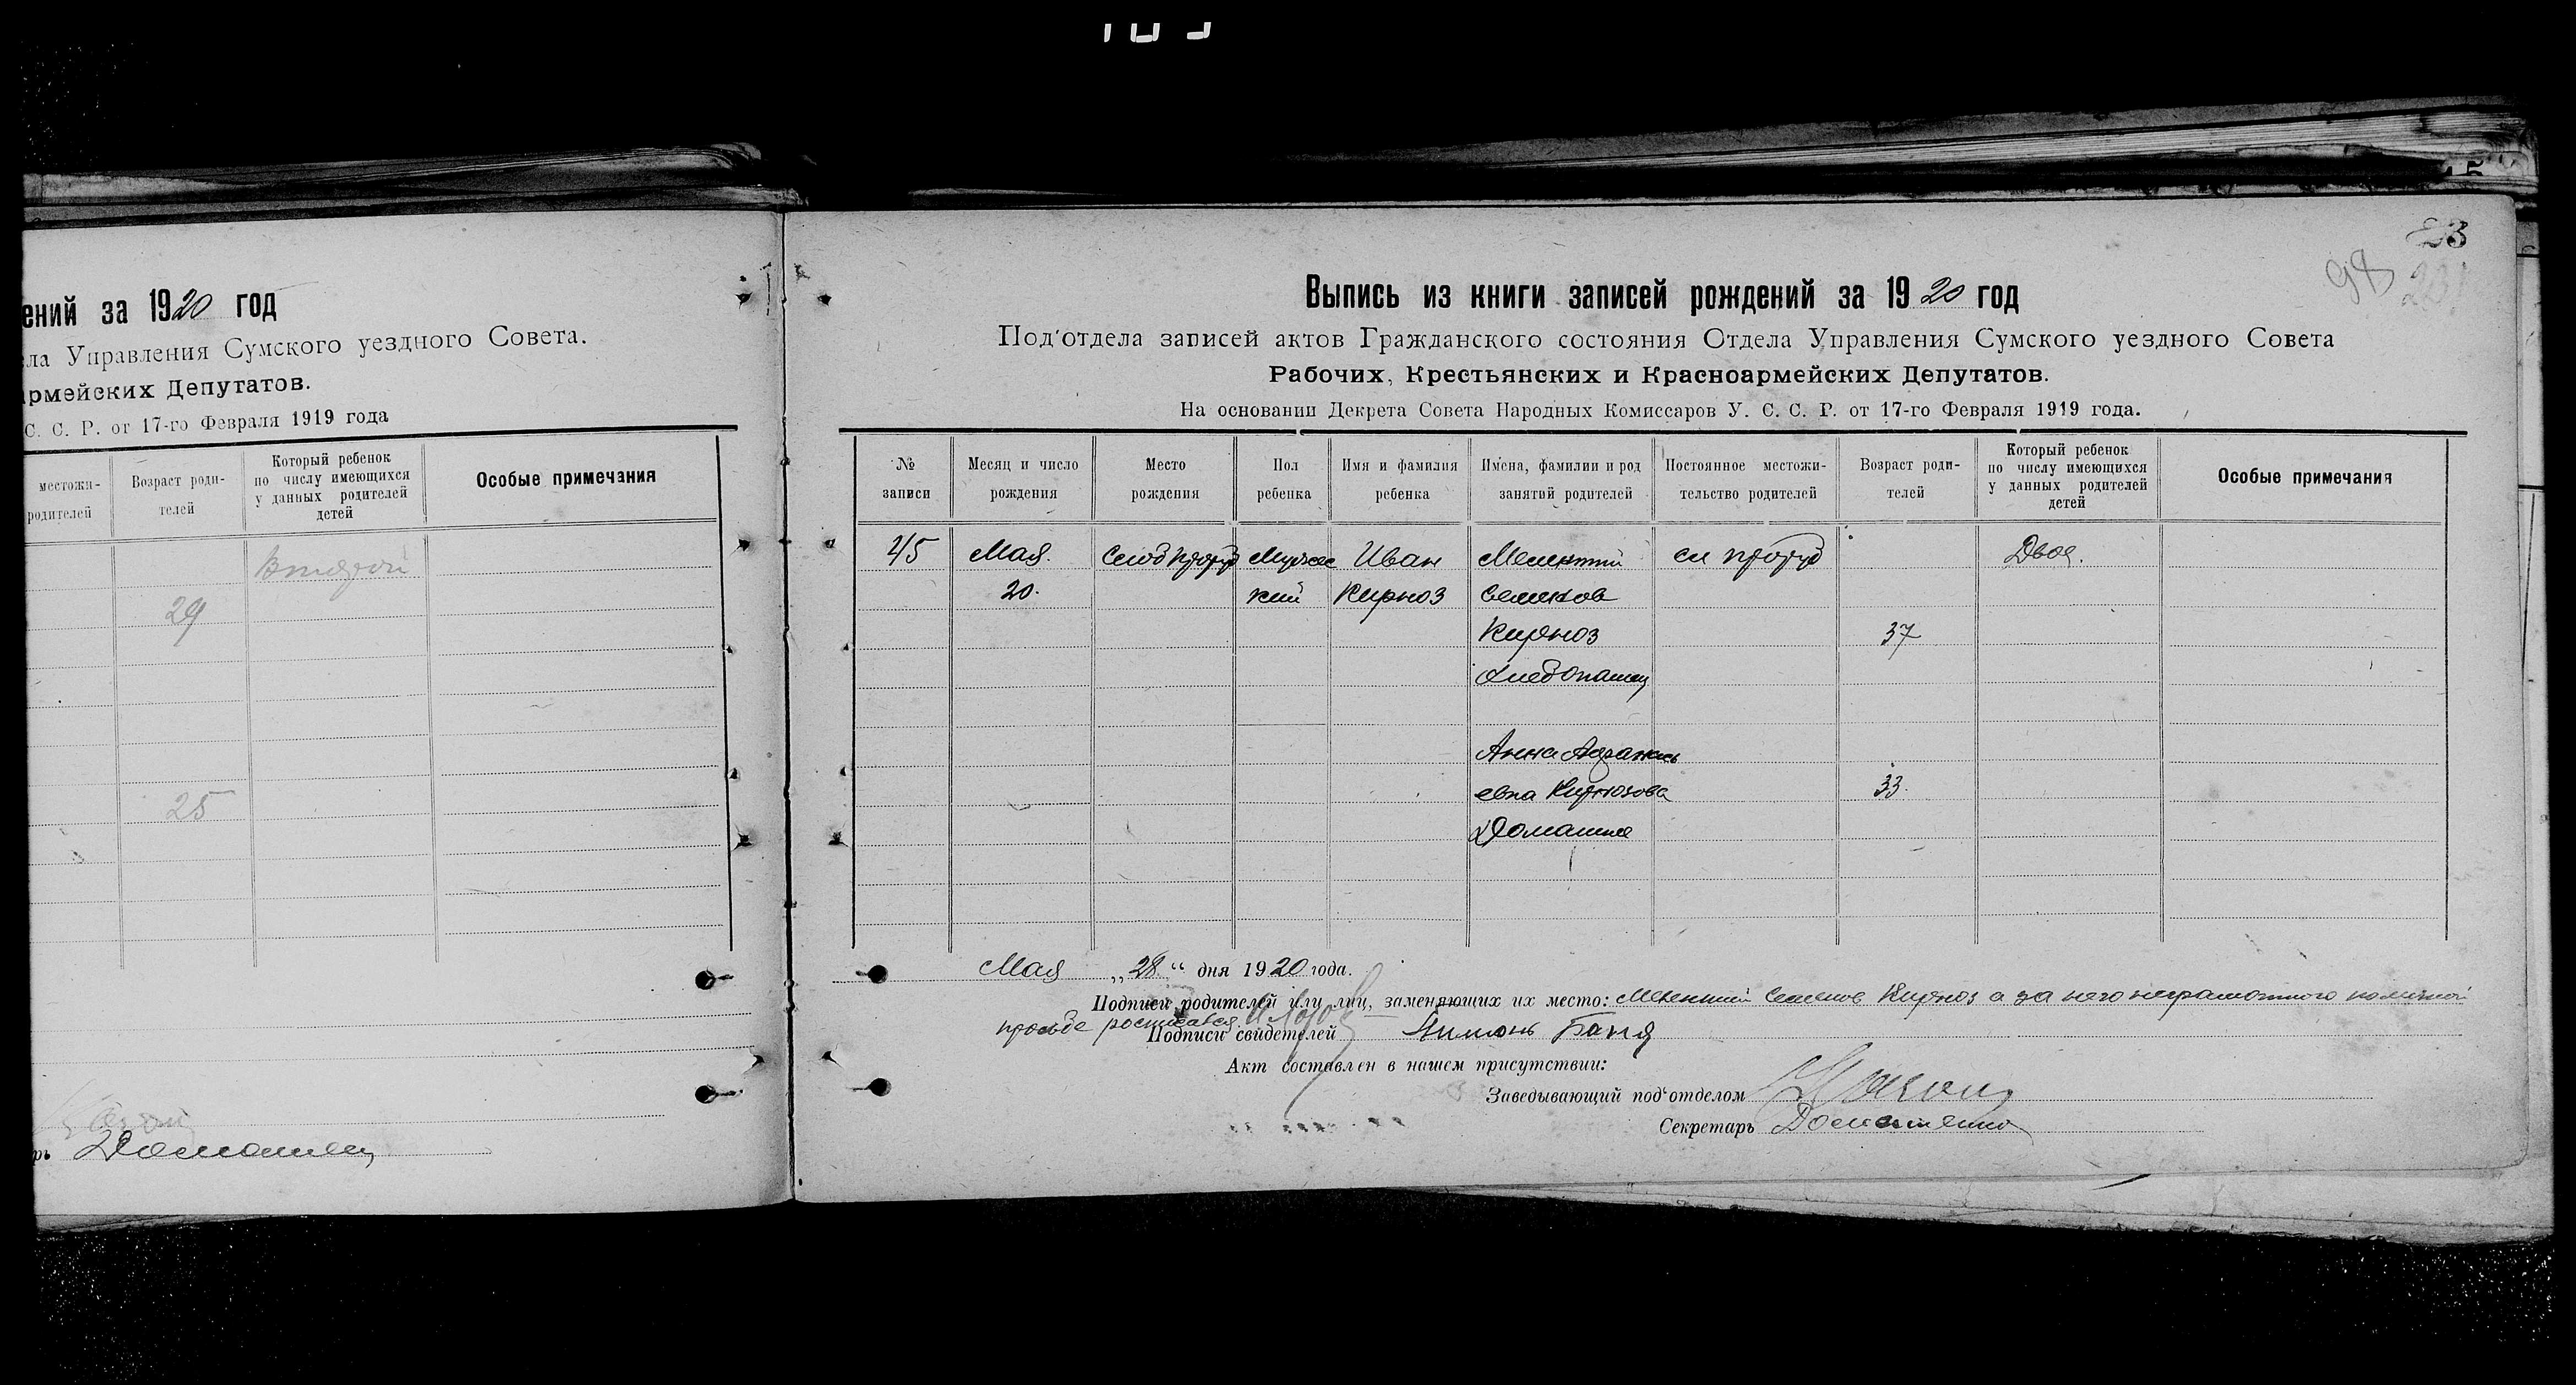 ений за 1920 год
ла Управления Сумского уездного Совета.
армейских Депутатов.
С. С. Р. от 17-го Февраля 1919 года
местожи-
родителей
Возраст роди-
телей
Который ребенок
по числу имеющихся
у данных родителей
детей
Особые примечания
Второй
29
25
рь
23
98
Выпись из книги записей рождений за 1920 год
Под'отдела записей актов Гражданского состояния Отдела Управления Сумского уездного Совета
Рабочих, Крестьянских и Красноармейских Депутатов.
На основании Декрета Совета Народных Комиссаров У. С. С. Р. от 17-го Февраля 1919 года.
№
записи
Месяц и число
рождения
Место
рождения
Пол
ребенка
Имя и фамилия
ребенка
Имена, фамилии и род
занятий родителей
Постоянное местожи-
тельство родителей
Возраст роди-
телей
Который ребенок
по числу имеющихся
у данных родителей
детей
Особые примечания
45
Мая
20.
Мужес
кий
Иван
Кирноз
Семенов
Кирноз
37
Хлебопашец
Двое.
Анна
евна Кирнозова
33.
Домашнее
Мая „28“ дня 1920 года.
Подписи родителей или лиц, заменяющих их место: Семенов Кирноз а за него неграмотного
просьбе
Подписи свидетелей
Акт составлен в нашем присутствии:
Заведывающий под'отделом
Секретарь